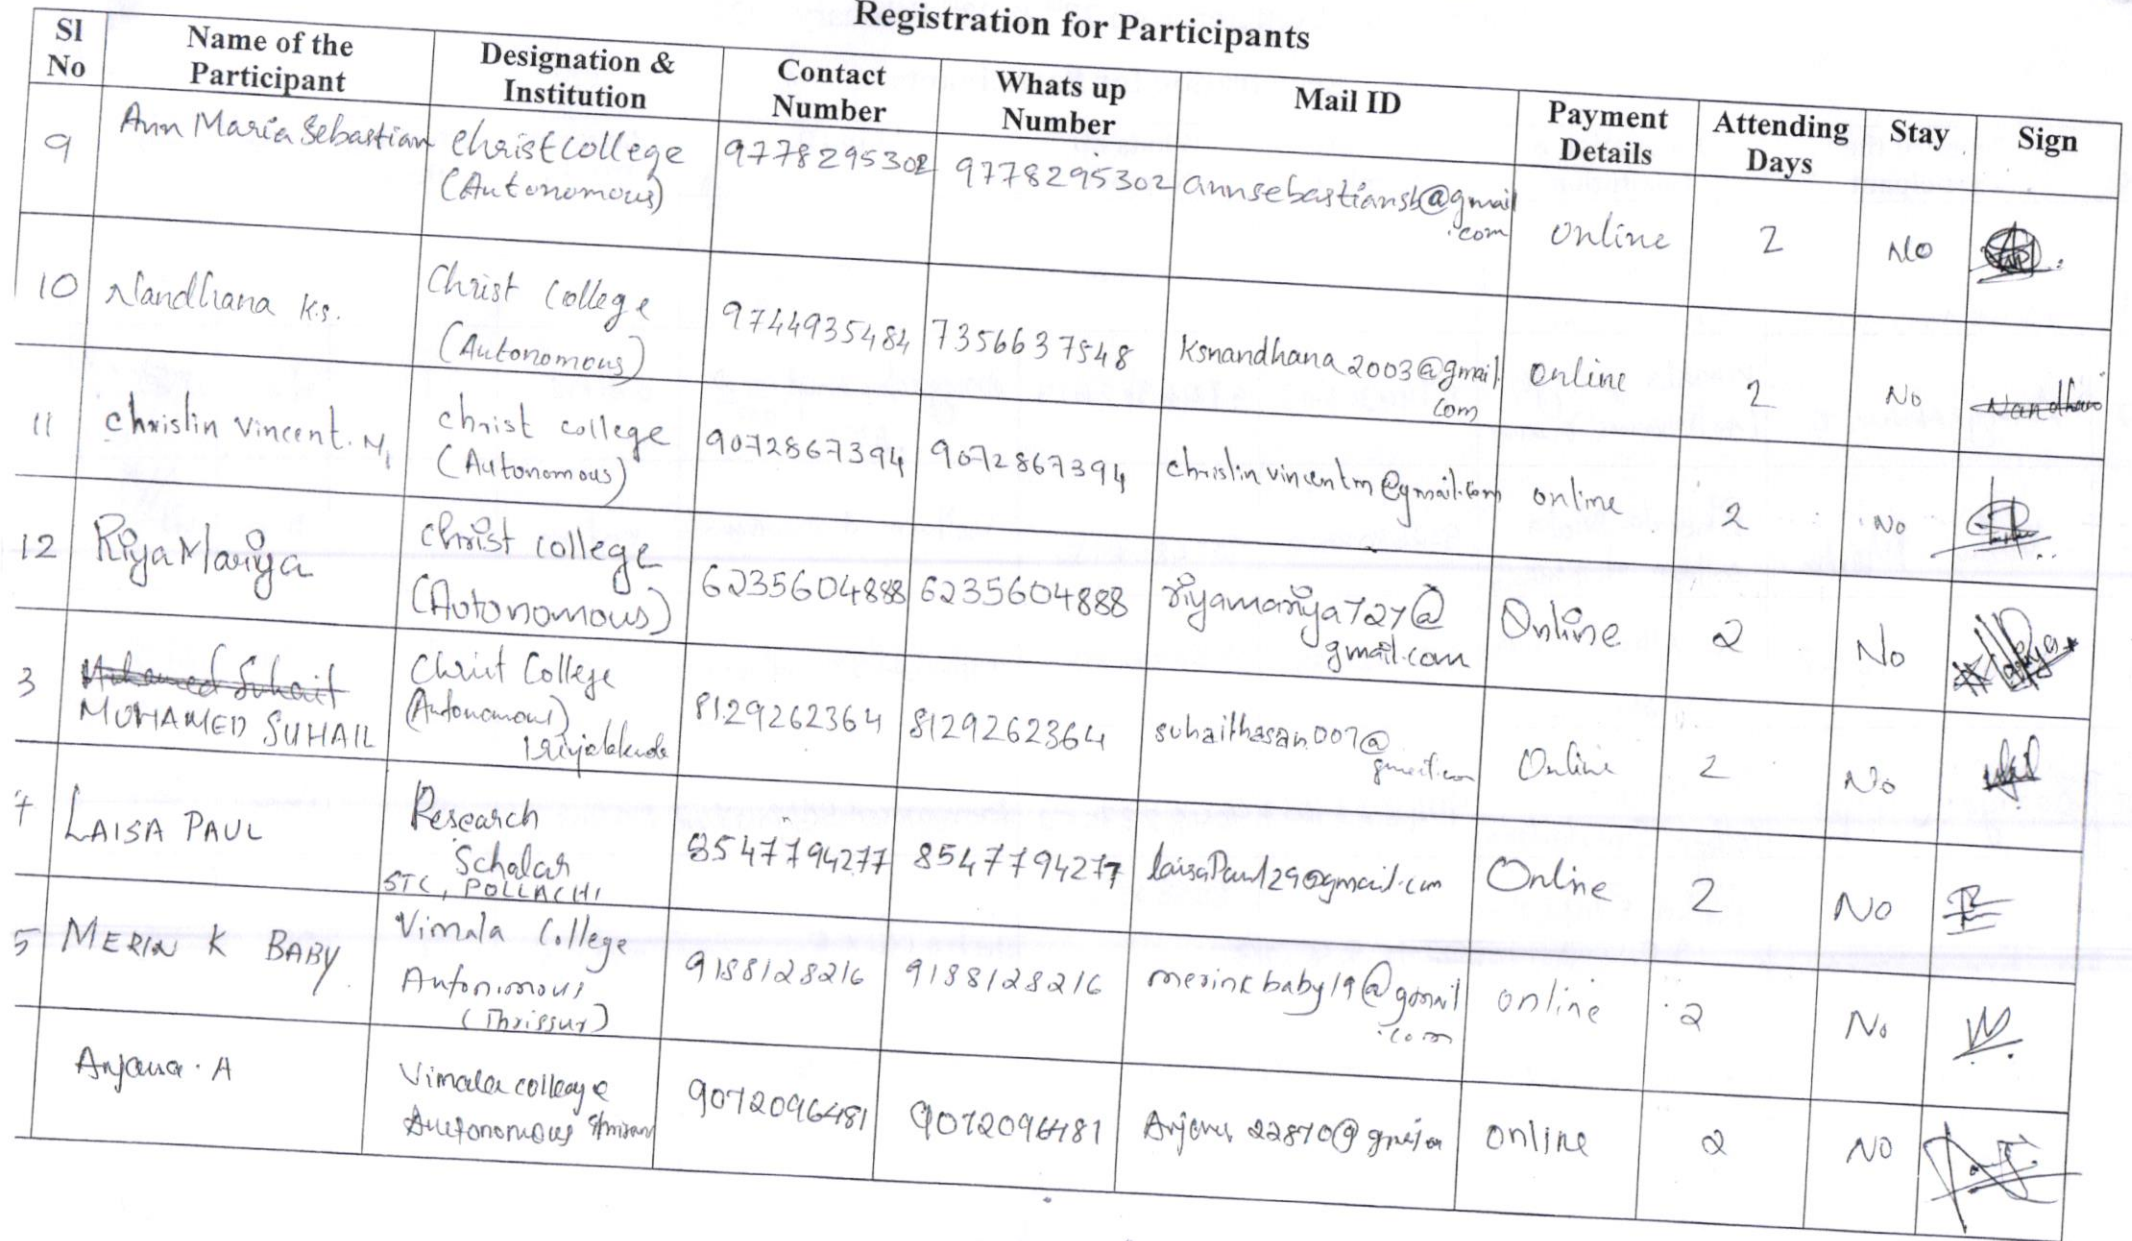 Registration for Participants
Sl No | Name of the Participant | Designation & Institution | Contact Number | Whats up Number | Mail ID | Payment Details | Attending Days | Stay | Sign
9 | Ann Maria Sebastian | Christ College (Autonomous) | 9778295302 | 9778295302 | @gmail.com | Online | 2 | No
10 | Nandhana K.S. | Christ College (Autonomous) | 9744935484 | 7356637548 | ksnandhana2003@gmail.com | Online | 2 | No | Nandhana
11 | Chrislin Vincent. M | Christ college (Autonomous) | 9072867394 | 9072867394 | chrislinvincentm@gmail.com | online | 2 | No
12 | Riya Mariya | Christ college (Autonomous) | 6235604888 | 6235604888 | riyamariya727@gmail.com | Online | 2 | No
3 | MUHAMED SUHAIL | Christ College (Autonomous) | 8129262364 | 8129262364 | Online | 2 | No
LAISA PAUL | Research Scholar STC, POLLACHI | 8547794277 | 8547794277 | laisaPaul29@gmail.com | Online | 2 | No
5 | MERIN K BABY | Vimala College Autonimous (Thrissur) | 9188128216 | 9188128216 | merinkbaby19@gmail.com | online | 2 | No
Anjana. A | Vimala college Autonomous | 9072096481 | 9072096481 | online | 2 | NO